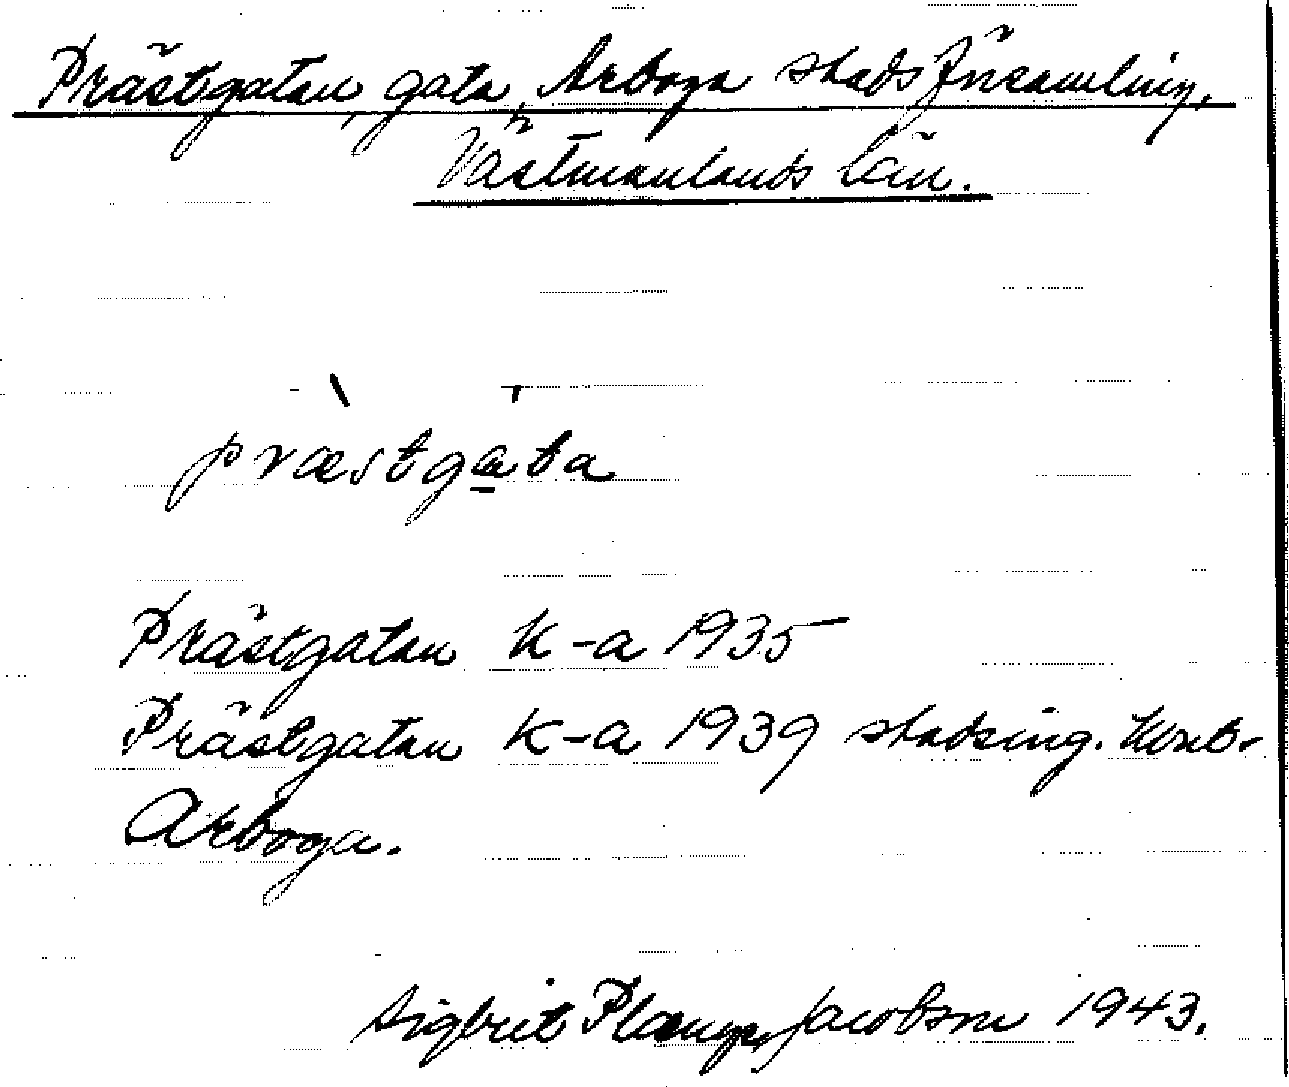 Prästgatan, gata, Arboga stadsförsamling,
Västmanlands län.
præstgata
Prästgatan K-a 1935
Prästgatan K-a 1939 stadsing. kont.
Arboga.
Sigbrit Plænge Jacobson 1943.